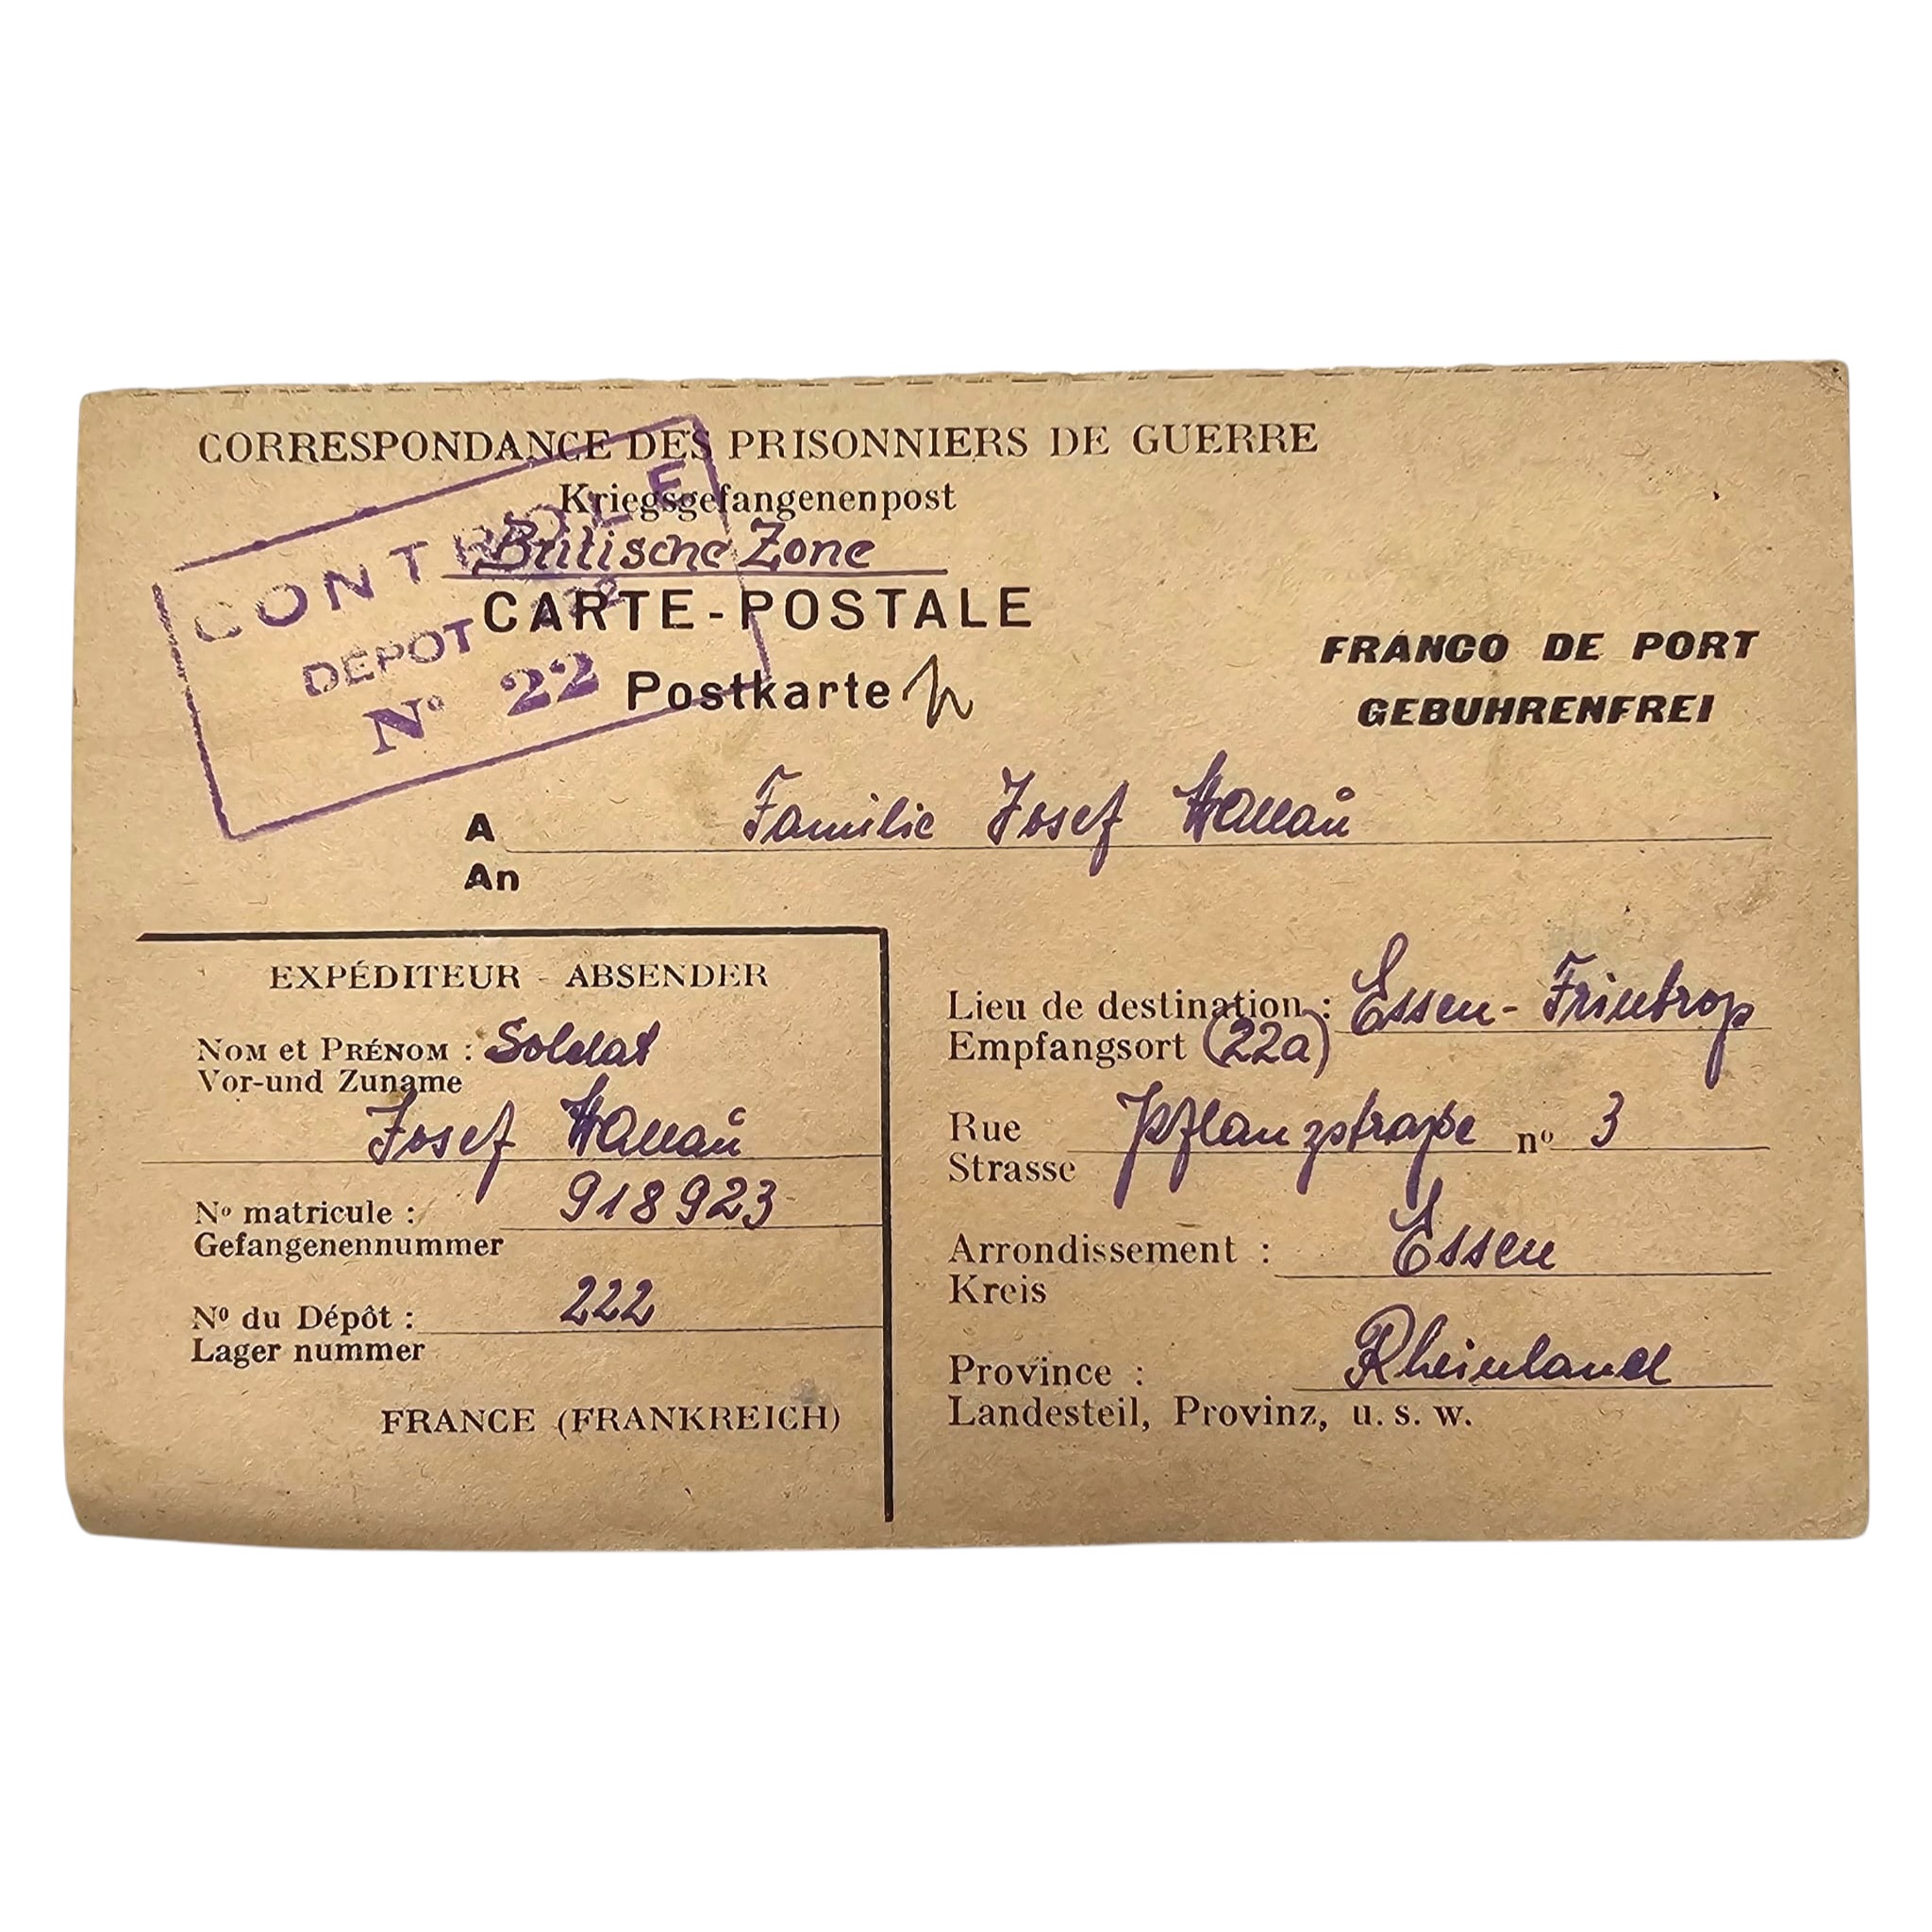 CORRESPONDANCE DES PRISONNIERS DE GUERRE
Kriegsgefangenenpost
Britische Zone
CONTROLE
DÉPOT 222
N° 22
CARTE-POSTALE
Postkarte
FRANCO DE PORT
GEBUHRENFREI
A Familie Josef
An
EXPÉDITEUR - ABSENDER
NOM et PRÉNOM : Soldat
Vor-und Zuname
Josef
N° matricule : 918923
Gefangenennummer
N° du Dépôt : 222
Lager nummer
FRANCE (FRANKREICH)
Lieu de destination : Essen-Frintrop
Empfangsort (22a)
Rue Pflanzstraße n° 3
Strasse
Arrondissement : Essen
Kreis
Province : Rheinland
Landesteil, Provinz, u. s. w.